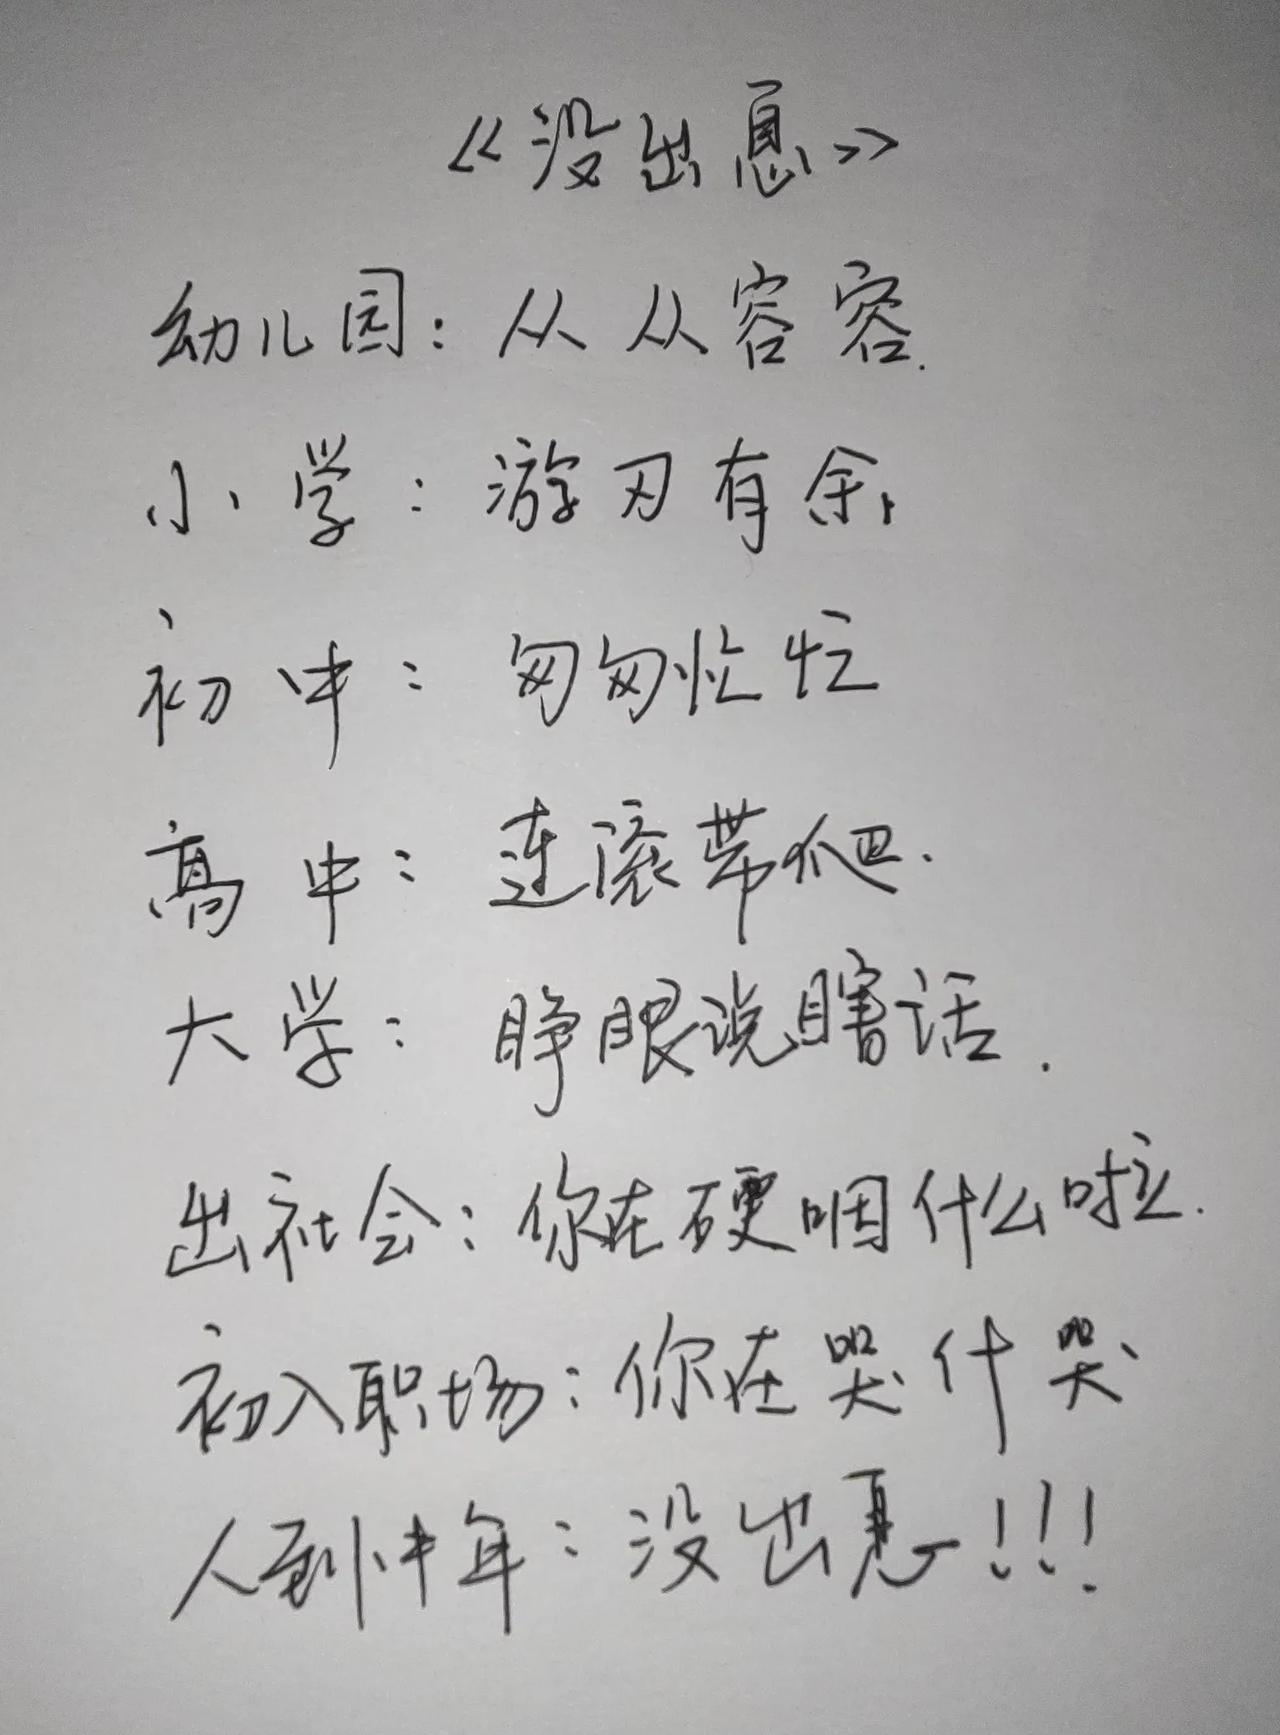 《没出息》
幼儿园：从从容容.
小学：游刃有余，
初中：匆匆忙忙
高中：连滚带爬.
大学：睁眼说瞎话.
出社会：你在硬咽什么啦.
初入职场：你在哭什哭
人到中年：没出息!!!